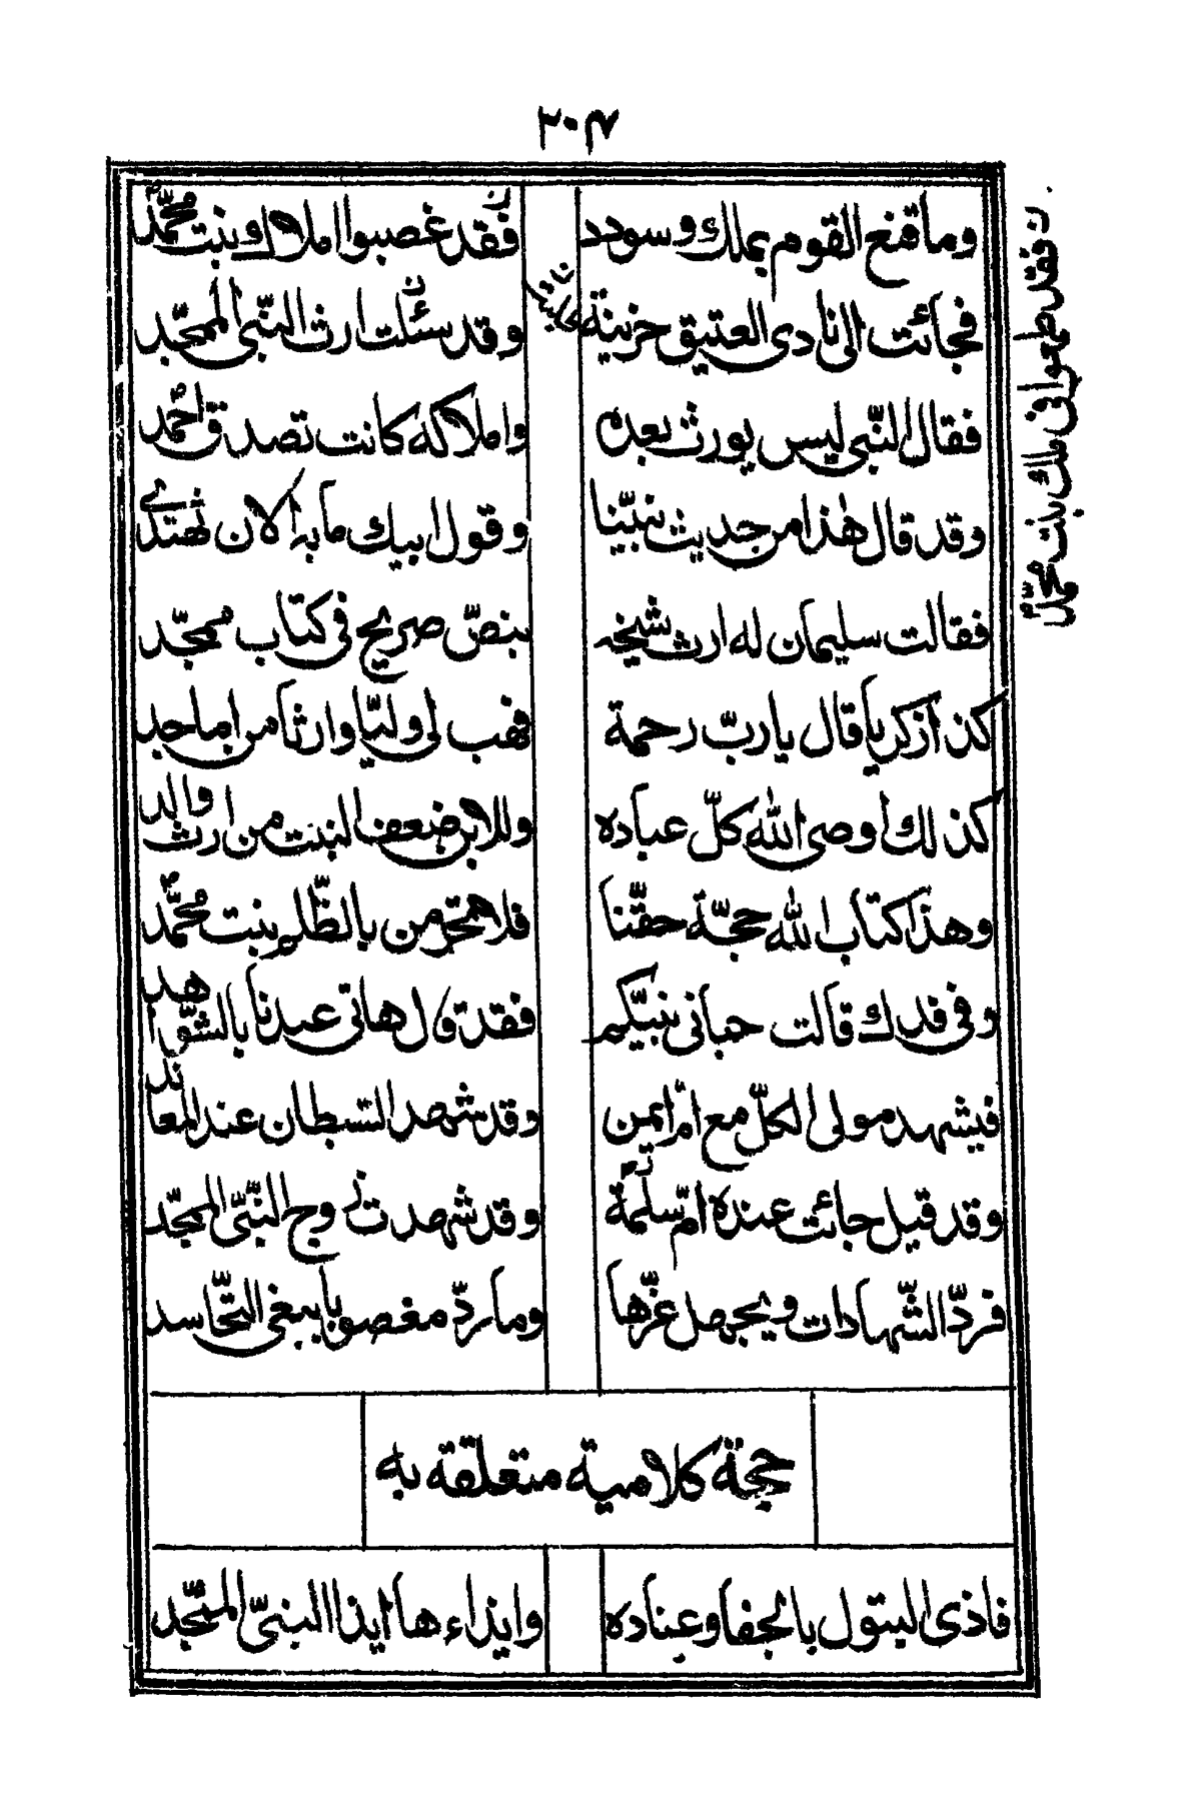 ٣٠٧
وما قنع القوم بملك وسودد فقد غصبوا املاك بنت محمد
فجائت الى نادى العتيق حزينة وقد سئلت ارث النبى الممجد
فقال النبى ليس يورث بعده واملاكه كانت تصدق احمد
وقد قال هذا من حديث نبينا وقول ابيك مابه الان نهتدى
فقالت سليمان له ارث شيخه بنص صريح فى كتاب ممجد
كذا زكريا قال يا رب رحمة فهب لى وليا وارثا من اماجد
كذلك اوصى الله كل عباده وللابن ضعف البنت من ارث والد
وهذا كتاب الله حجة حقنا فلا تحرمن بالظلم بنت محمد
وفى فدك قالت حبانى نبيكم فقد قال هاتى عندنا بالشواهد
فيشهد مولى الكل مع ام ايمن وقد شهد السبطان عند المعاند
وقد قيل جائت عنده ام سلمة وقد شهدت زوج النبى الممجد
فرد الشهادات ويجهل عزها وما رد مغصوبا ببغى التحاسد
حجة كلامية متعلقة به
فاذى البتول بالجفا وعناده وايذاءها ايذا النبى الممجد
ن فقد طمعوا فى ملك بنت محمد